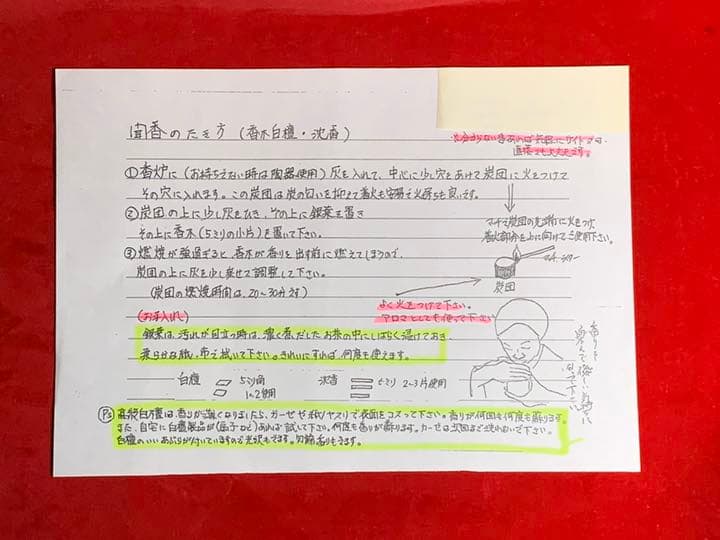 聞香のたき方 (香木白檀・沈香)
直接でも大丈夫です。
①香炉に(お持ちでない時は陶器使用)灰を入れて、中心に少し穴をあけて炭団に火をつけて
その穴に入れます。この炭団は炭の匂いを抑えて着火も容易で火持ちも良いです。
②炭団の上に少し灰をひき、その上に銀葉を置き
その上に香木(5ミリの小片)を置いて下さい。
マッチで炭団の先端に火をつけ
着火部分を上に向けてご使用下さい。
③燃焼が強過ぎると、香木が香りを出す前に燃えてしまうので、
炭団の上に灰を少し乗せて調整して下さい。
(炭団の燃焼時間は、20~30分です)
炭団
よく火をつけて下さい。
アロマとしても使って下さい
(お手入れ)
銀葉は、汚れが目立つ時は、濃く煮だしたお茶の中にしばらく漬けておき
柔らかな紙、布で拭いて下さい。きれいにすれば、何度も使えます。
香りを
白檀 5ミリ角 沈香 2~3片使用
1~2使用
Ps 高級白檀は香りが薄くなりましたら、ガーゼや紙ヤスリで表面をコスって下さい。香りが何回も何度も蘇ります。
また、自宅に白檀製品が(扇子など)あれば試いて下さい。何度も香りが蘇ります。ガーゼは次回まで使わないで下さい。
白檀のいいあぶらが付いていますので光沢もでます。勿論香りもでます。